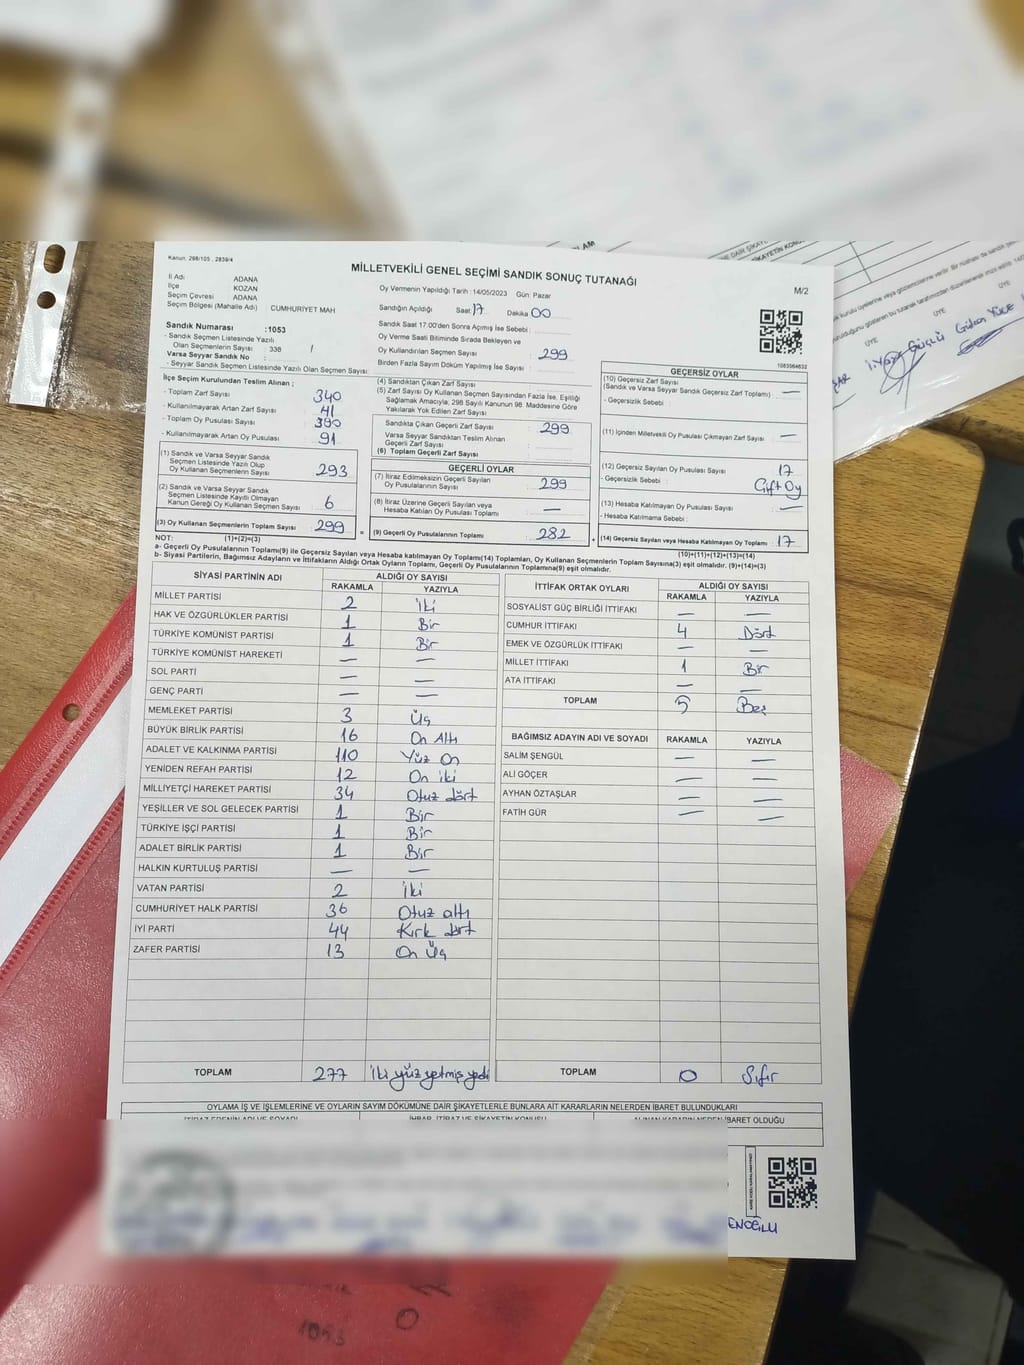 Kanun. 298/105 , 2839/4
MİLLETVEKİLİ GENEL SEÇİMİ SANDIK SONUÇ TUTANAĞI
M/2
İl Adı ADANA
İlçe KOZAN
Seçim Çevresi ADANA
Seçim Bölgesi (Mahalle Adı) CUMHURIYET MAH
Oy Vermenin Yapıldığı Tarih :14/05/2023 Gün: Pazar
Sandığın Açıldığı Saat: 17 Dakika 00
Sandık Saat 17:00'den Sonra Açılmış İse Sebebi :
Oy Verme Saati Bitiminde Sırada Bekleyen ve
Oy Kullandırılan Seçmen Sayısı : 299
Birden Fazla Sayım Döküm Yapılmış İse Sayısı :
Sandık Numarası :1053
- Sandık Seçmen Listesinde Yazılı
Olan Seçmenlerin Sayısı : 338 /
Varsa Seyyar Sandık No :
- Seyyar Sandık Seçmen Listesinde Yazılı Olan Seçmen Sayısı:
1083564632
İlçe Seçim Kurulundan Teslim Alınan ;
- Toplam Zarf Sayısı : 340
- Kullanılmayarak Artan Zarf Sayısı : 41
- Toplam Oy Pusulası Sayısı :
- Kullanılmayarak Artan Oy Pusulası : 91
(1) Sandık ve Varsa Seyyar Sandık
Seçmen Listesinde Yazılı Olup
Oy Kullanan Seçmenlerin Sayısı : 293
(2) Sandık ve Varsa Seyyar Sandık
Seçmen Listesinde Kayıtlı Olmayan
Kanun Gereği Oy Kullanan Seçmen Sayısı : 6
(3) Oy Kullanan Seçmenlerin Toplam Sayısı : 299
(4) Sandıktan Çıkan Zarf Sayısı :
(5) Zarf Sayısı Oy Kullanan Seçmen Sayısından Fazla İse, Eşitliği
Sağlamak Amacıyla, 298 Sayılı Kanunun 98. Maddesine Göre
Yakılarak Yok Edilen Zarf Sayısı :
Sandıkta Çıkan Geçerli Zarf Sayısı : 299
Varsa Seyyar Sandıktan Teslim Alınan
Geçerli Zarf Sayısı :
(6) Toplam Geçerli Zarf Sayısı :
GEÇERLİ OYLAR
(7) İtiraz Edilmeksizin Geçerli Sayılan
Oy Pusulalarının Sayısı : 299
(8) İtiraz Üzerine Geçerli Sayılan veya
Hesaba Katılan Oy Pusulası Toplamı : —
= (9) Geçerli Oy Pusulalarının Toplamı : 282
GEÇERSİZ OYLAR
(10) Geçersiz Zarf Sayısı
(Sandık ve Varsa Seyyar Sandık Geçersiz Zarf Toplamı) : —
- Geçersizlik Sebebi :
(11) İçinden Milletvekili Oy Pusulası Çıkmayan Zarf Sayısı : —
(12) Geçersiz Sayılan Oy Pusulası Sayısı : 17
- Geçersizlik Sebebi : Çift Oy
(13) Hesaba Katılmayan Oy Pusulası Sayısı : —
- Hesaba Katılmama Sebebi :
+ (14) Geçersiz Sayılan veya Hesaba Katılmayan Oy Toplamı : 17
NOT: (1)+(2)=(3)
(10)+(11)+(12)+(13)=(14)
a- Geçerli Oy Pusulalarının Toplamı(9) ile Geçersiz Sayılan veya Hesaba katılmayan Oy Toplamı(14) Toplamları, Oy Kullanan Seçmenlerin Toplam Sayısına(3) eşit olmalıdır. (9)+(14)=(3)
b- Siyasi Partilerin, Bağımsız Adayların ve İttifakların Aldığı Ortak Oyların Toplamı, Geçerli Oy Pusulalarının Toplamına(9) eşit olmalıdır.
SİYASİ PARTİNİN ADI ALDIĞI OY SAYISI
RAKAMLA YAZIYLA
MİLLET PARTİSİ 2 iki
HAK VE ÖZGÜRLÜKLER PARTİSİ 1 Bir
TÜRKİYE KOMÜNİST PARTİSİ 1 Bir
TÜRKİYE KOMÜNİST HAREKETİ — —
SOL PARTİ — —
GENÇ PARTİ — —
MEMLEKET PARTİSİ 3 Üç
BÜYÜK BİRLİK PARTİSİ 16 On Altı
ADALET VE KALKINMA PARTİSİ 110 Yüz On
YENİDEN REFAH PARTİSİ 12 On iki
MİLLİYETÇİ HAREKET PARTİSİ 34 Otuz dört
YEŞİLLER VE SOL GELECEK PARTİSİ 1 Bir
TÜRKİYE İŞÇİ PARTİSİ 1 Bir
ADALET BİRLİK PARTİSİ 1 Bir
HALKIN KURTULUŞ PARTİSİ — —
VATAN PARTİSİ 2 iki
CUMHURİYET HALK PARTİSİ 36 Otuz altı
İYİ PARTİ 44 Kırk dört
ZAFER PARTİSİ 13 On Üç
TOPLAM 277 iki yüz yetmiş yedi
İTTİFAK ORTAK OYLARI ALDIĞI OY SAYISI
RAKAMLA YAZIYLA
SOSYALİST GÜÇ BİRLİĞİ İTTİFAKI — —
CUMHUR İTTİFAKI 4 Dört
EMEK VE ÖZGÜRLÜK İTTİFAKI — —
MİLLET İTTİFAKI 1 Bir
ATA İTTİFAKI — —
TOPLAM 5 Beş
BAĞIMSIZ ADAYIN ADI VE SOYADI RAKAMLA YAZIYLA
SALİM ŞENGÜL — —
ALİ GÖÇER — —
AYHAN ÖZTAŞLAR — —
FATİH GÜR — —
TOPLAM 0 Sıfır
OYLAMA İŞ VE İŞLEMLERİNE VE OYLARIN SAYIM DÖKÜMÜNE DAİR ŞİKAYETLERLE BUNLARA AİT KARARLARIN NELERDEN İBARET BULUNDUKLARI
İTİRAZ EDENİN ADI VE SOYADI İHBAR, İTİRAZ VE ŞİKAYETİN KONUSU ALINAN KARARIN NEDEN İBARET OLDUĞU
ENOĞLU
ÜYE
ÜYE
1053